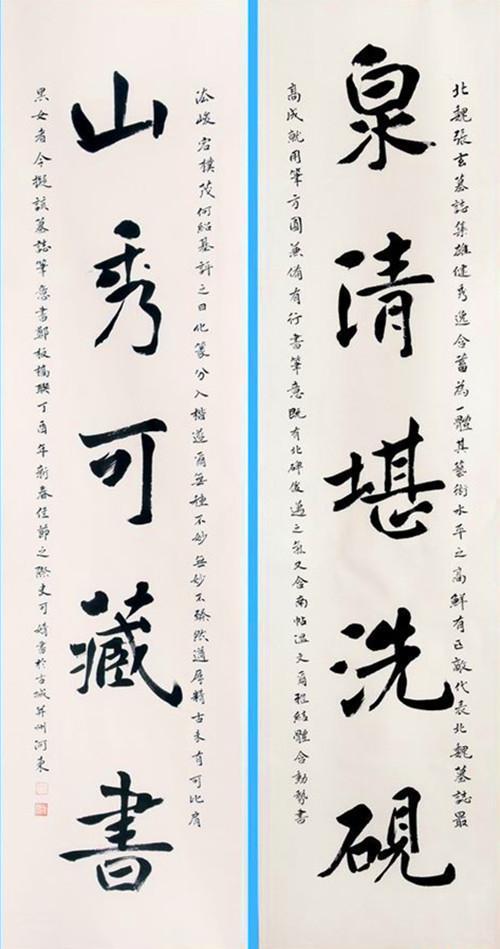 北魏張玄墓誌集雄健秀逸含蓄為一體其藝術水平之高鮮有匹敵代表北魏墓誌最
泉清堪洗硯
高成就用筆方圓兼備有行書筆意既有北碑俊邁之氣又含南帖溫文爾雅結體含動勢書
法峻宕樸茂何紹基評之曰化篆分入楷遂爾無種不妙無妙不臻然遒厚精古未有可比肩
山秀可藏書
黑女者今擬該墓誌筆意書鄭板橋聯丁酉年新春佳節之際史可書於古城并州河東